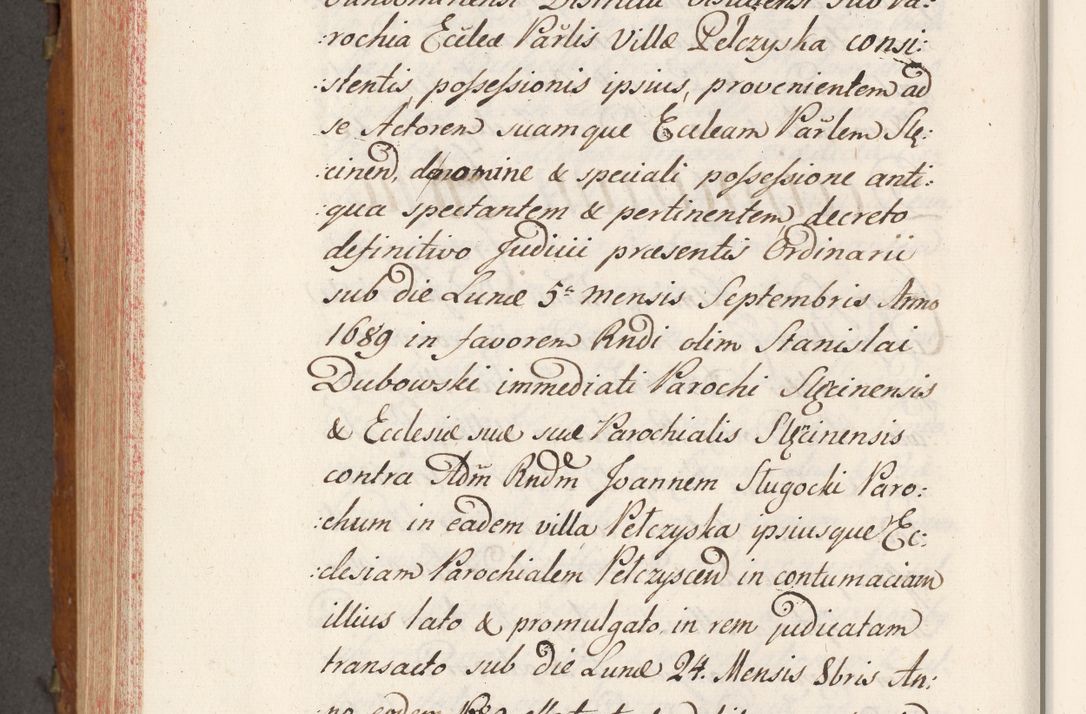 :rochia Eccleæ Parlis Villæ Pelczyska consi:
:stentis possessionis ipsius, provenientem ad
se Actorem suamque Eccleam Parlem Slę:
:cinen, dnomine & speciali possessione anti:
:qua spectantem & pertinentem, decreto
definitivo Judicii præsentis Ordinarii
sub die Lunæ 5ta mensis Septembris Anno
1689 in favorem Rndi olim Stanislai
Dubowski immediati Parochi Slęcinensis
& Ecclesiæ suæ suæ Parochialis Slęcinensis
contra Adm Rndm Joannem Slugocki Paro:
:chum in eadem villa Pełczyska ipsiusque Ec:
:clesiam Parochialem Pełczyscen in contumaciam
illius lato & promulgato, in rem judicatam
transacto sub die Lunæ 24. Mensis 8bris An: